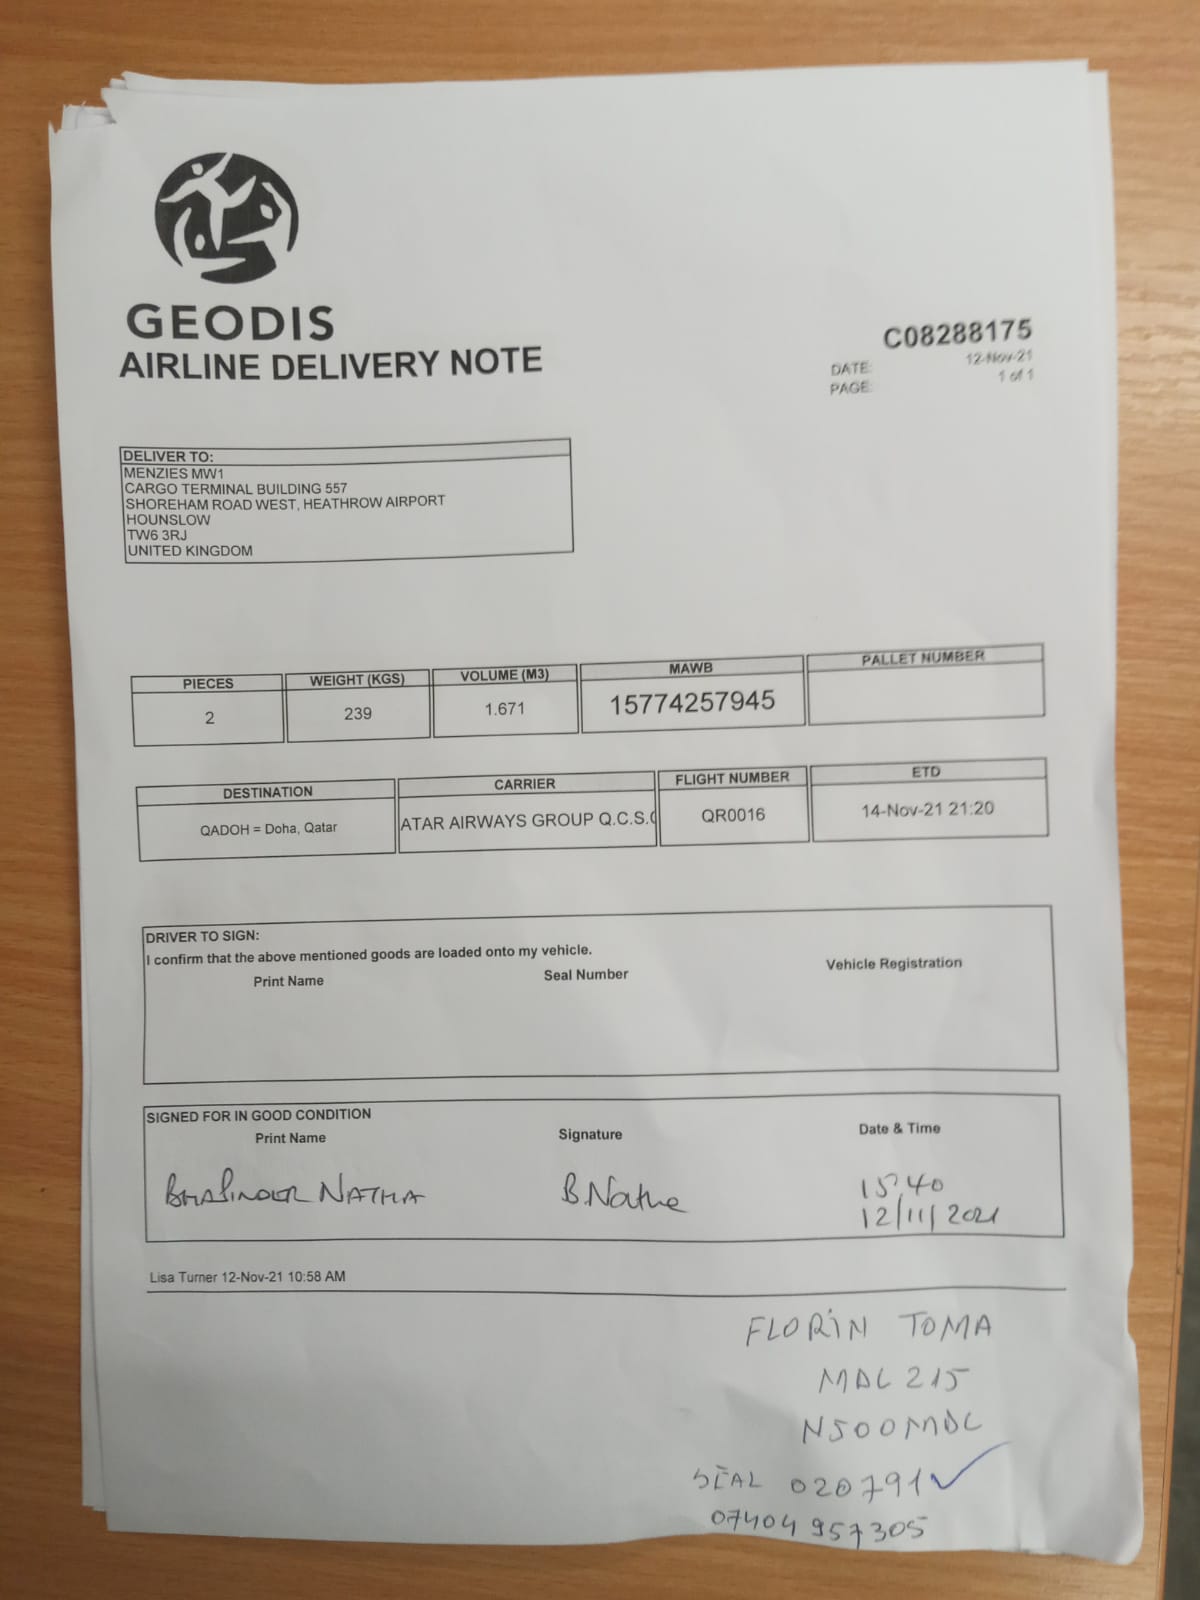 GEODIS
AIRLINE DELIVERY NOTE
C08288175
DATE: 12-Nov-21
PAGE: 1 of 1
DELIVER TO:
MENZIES MW1
CARGO TERMINAL BUILDING 557
SHOREHAM ROAD WEST, HEATHROW AIRPORT
HOUNSLOW
TW6 3RJ
UNITED KINGDOM
PIECES WEIGHT (KGS) VOLUME (M3) MAWB PALLET NUMBER
2 239 1.671 15774257945
DESTINATION CARRIER FLIGHT NUMBER ETD
QADOH = Doha, Qatar ATAR AIRWAYS GROUP Q.C.S.( QR0016 14-Nov-21 21:20
DRIVER TO SIGN:
I confirm that the above mentioned goods are loaded onto my vehicle.
Print Name Seal Number Vehicle Registration
SIGNED FOR IN GOOD CONDITION
Print Name Signature Date & Time
NATHA B.Natha 15:40
12/11/2021
Lisa Turner 12-Nov-21 10:58 AM
FLORIN TOMA
MDL 215
N500MDL
SEAL 020791
07404 957305